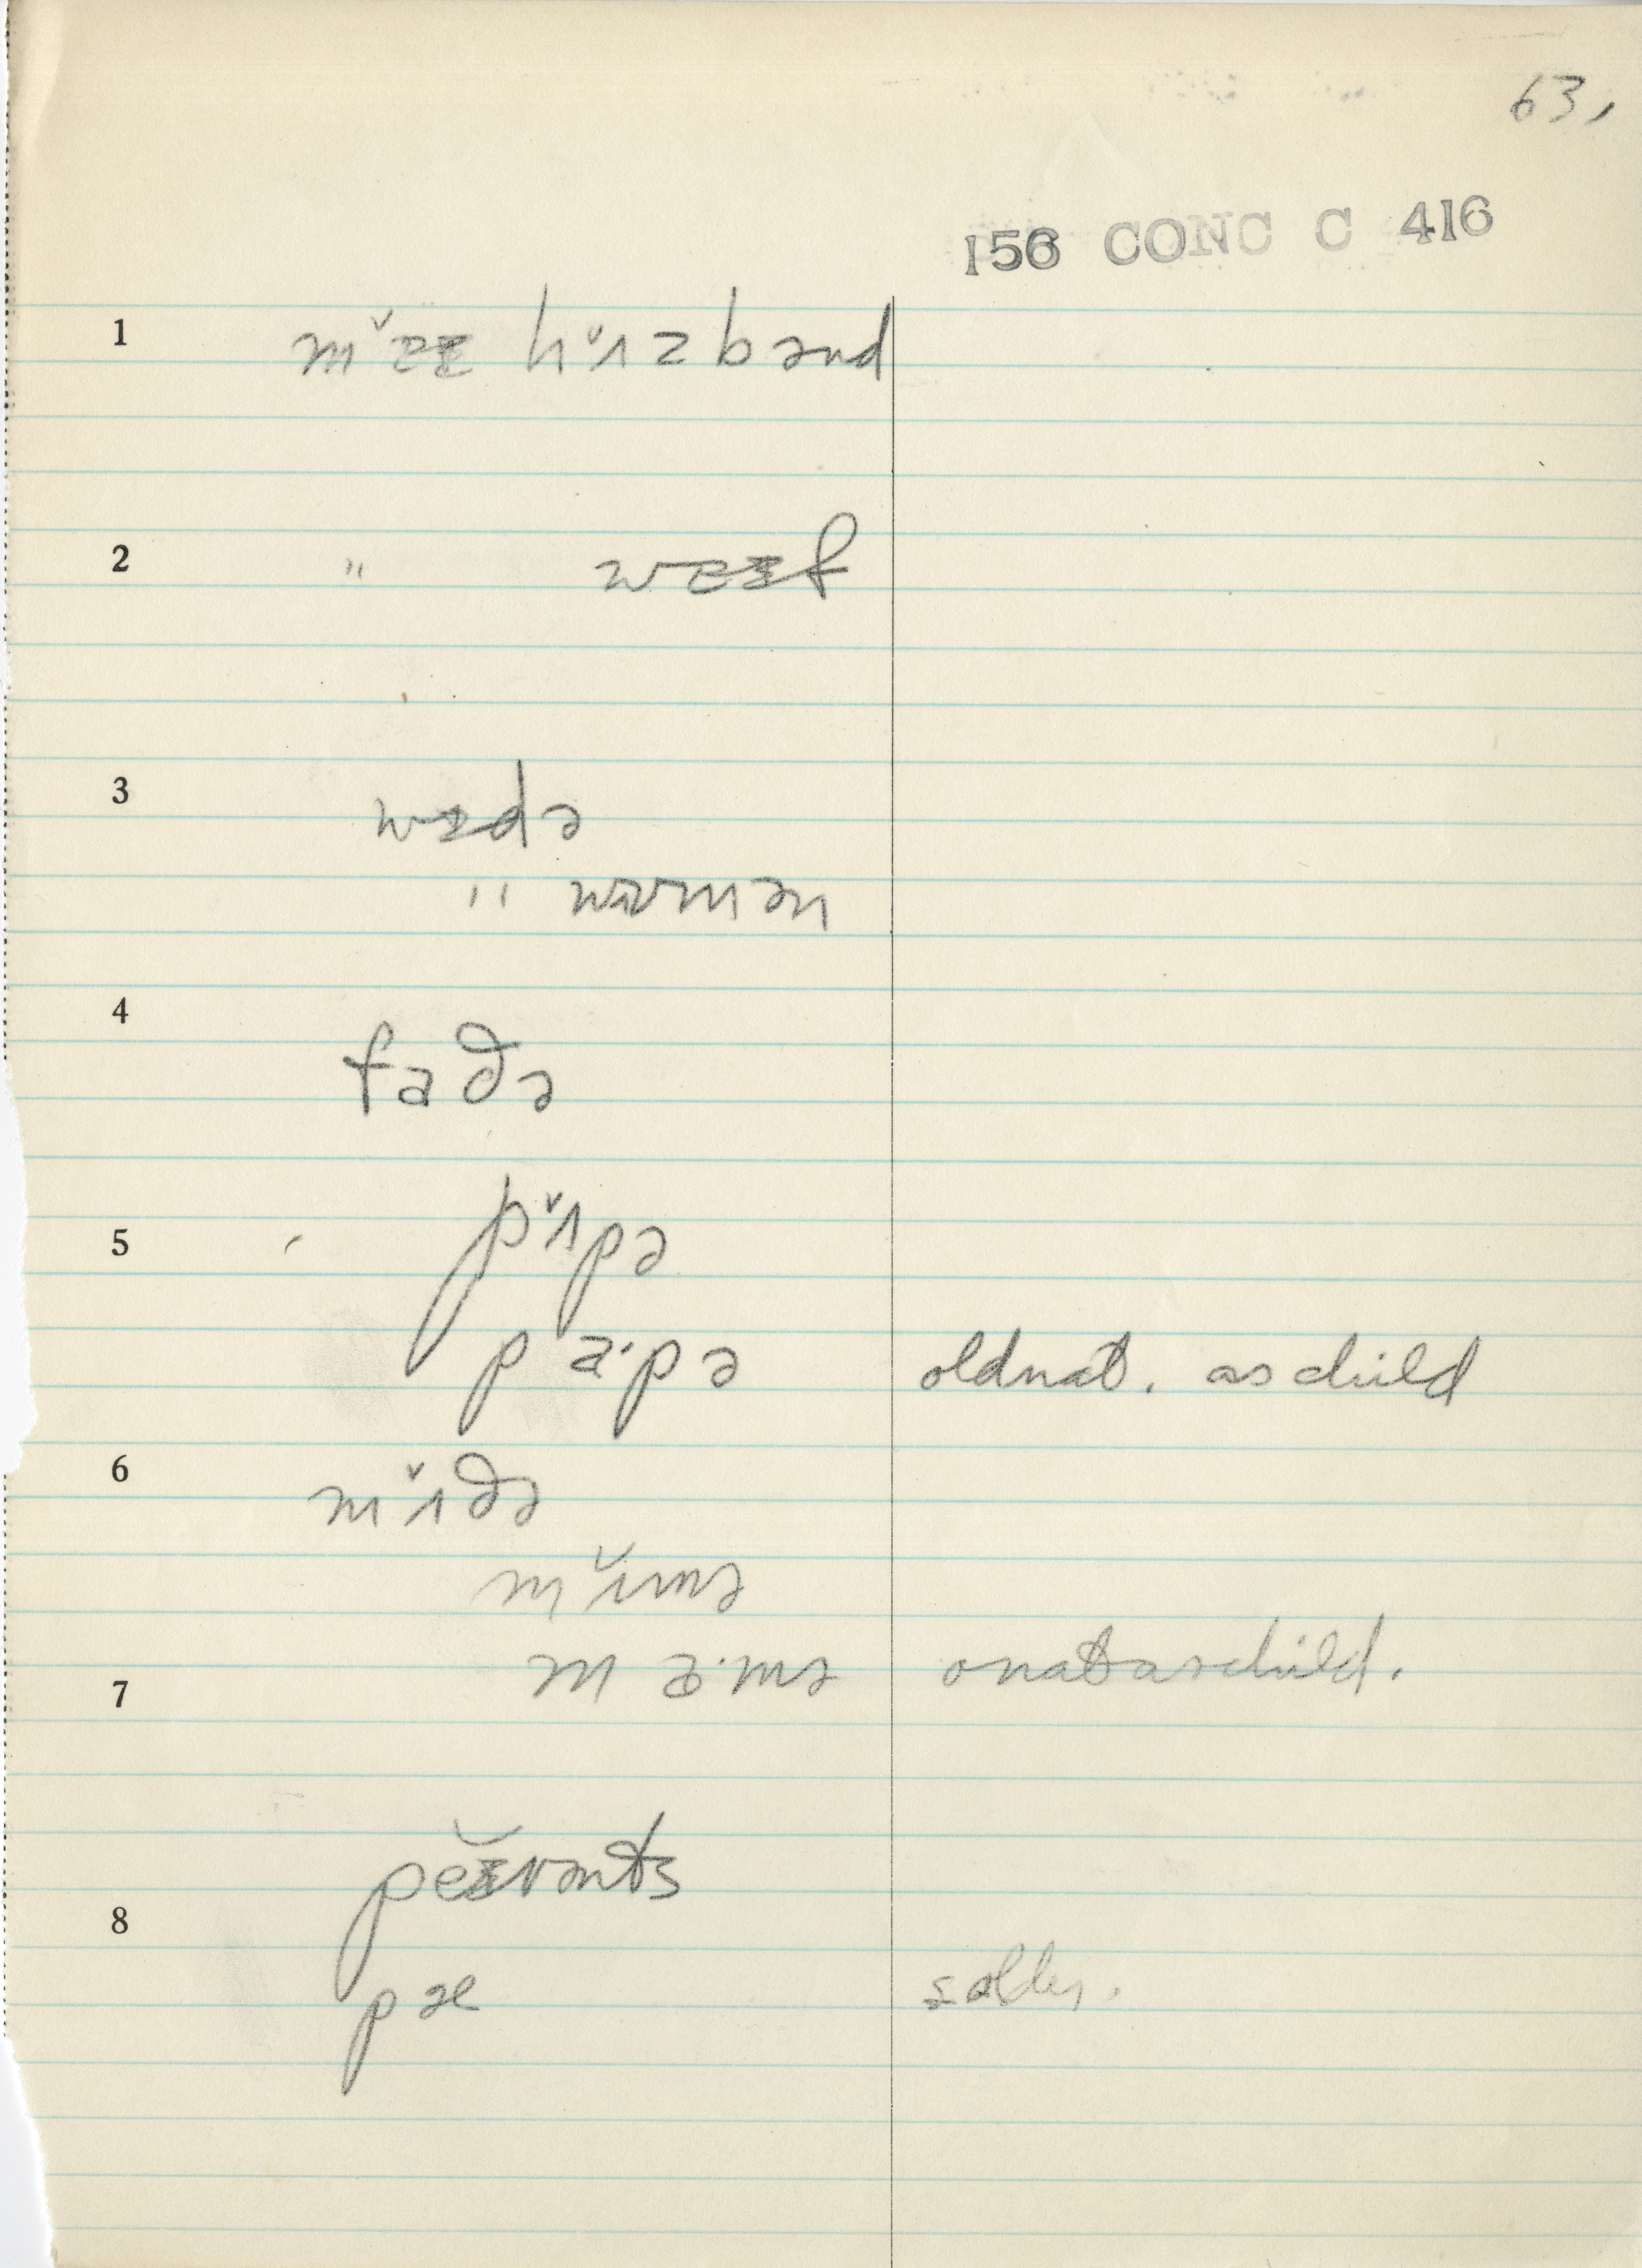 63,
156 CONC C 416
1 mɐ̆ɪ hɜ̆zbənd
2 " wɐɪf
3 wɪdə
" wʊmən
4 faðə
5 pʌ̆pə
pa·pə oldnat. as child
6 mʌ̆ðə
mʌ̆mə
7 ma·mə onat as child.
pĕɪrənts
8 pæ solder.